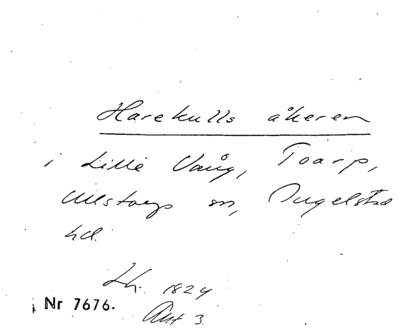 Harekulls åkeren
i Lille Vång, Toarp,
Ullstorps sn, Ingelstad
hd.
Lh. 1824
Akt 3.
Nr 7676.